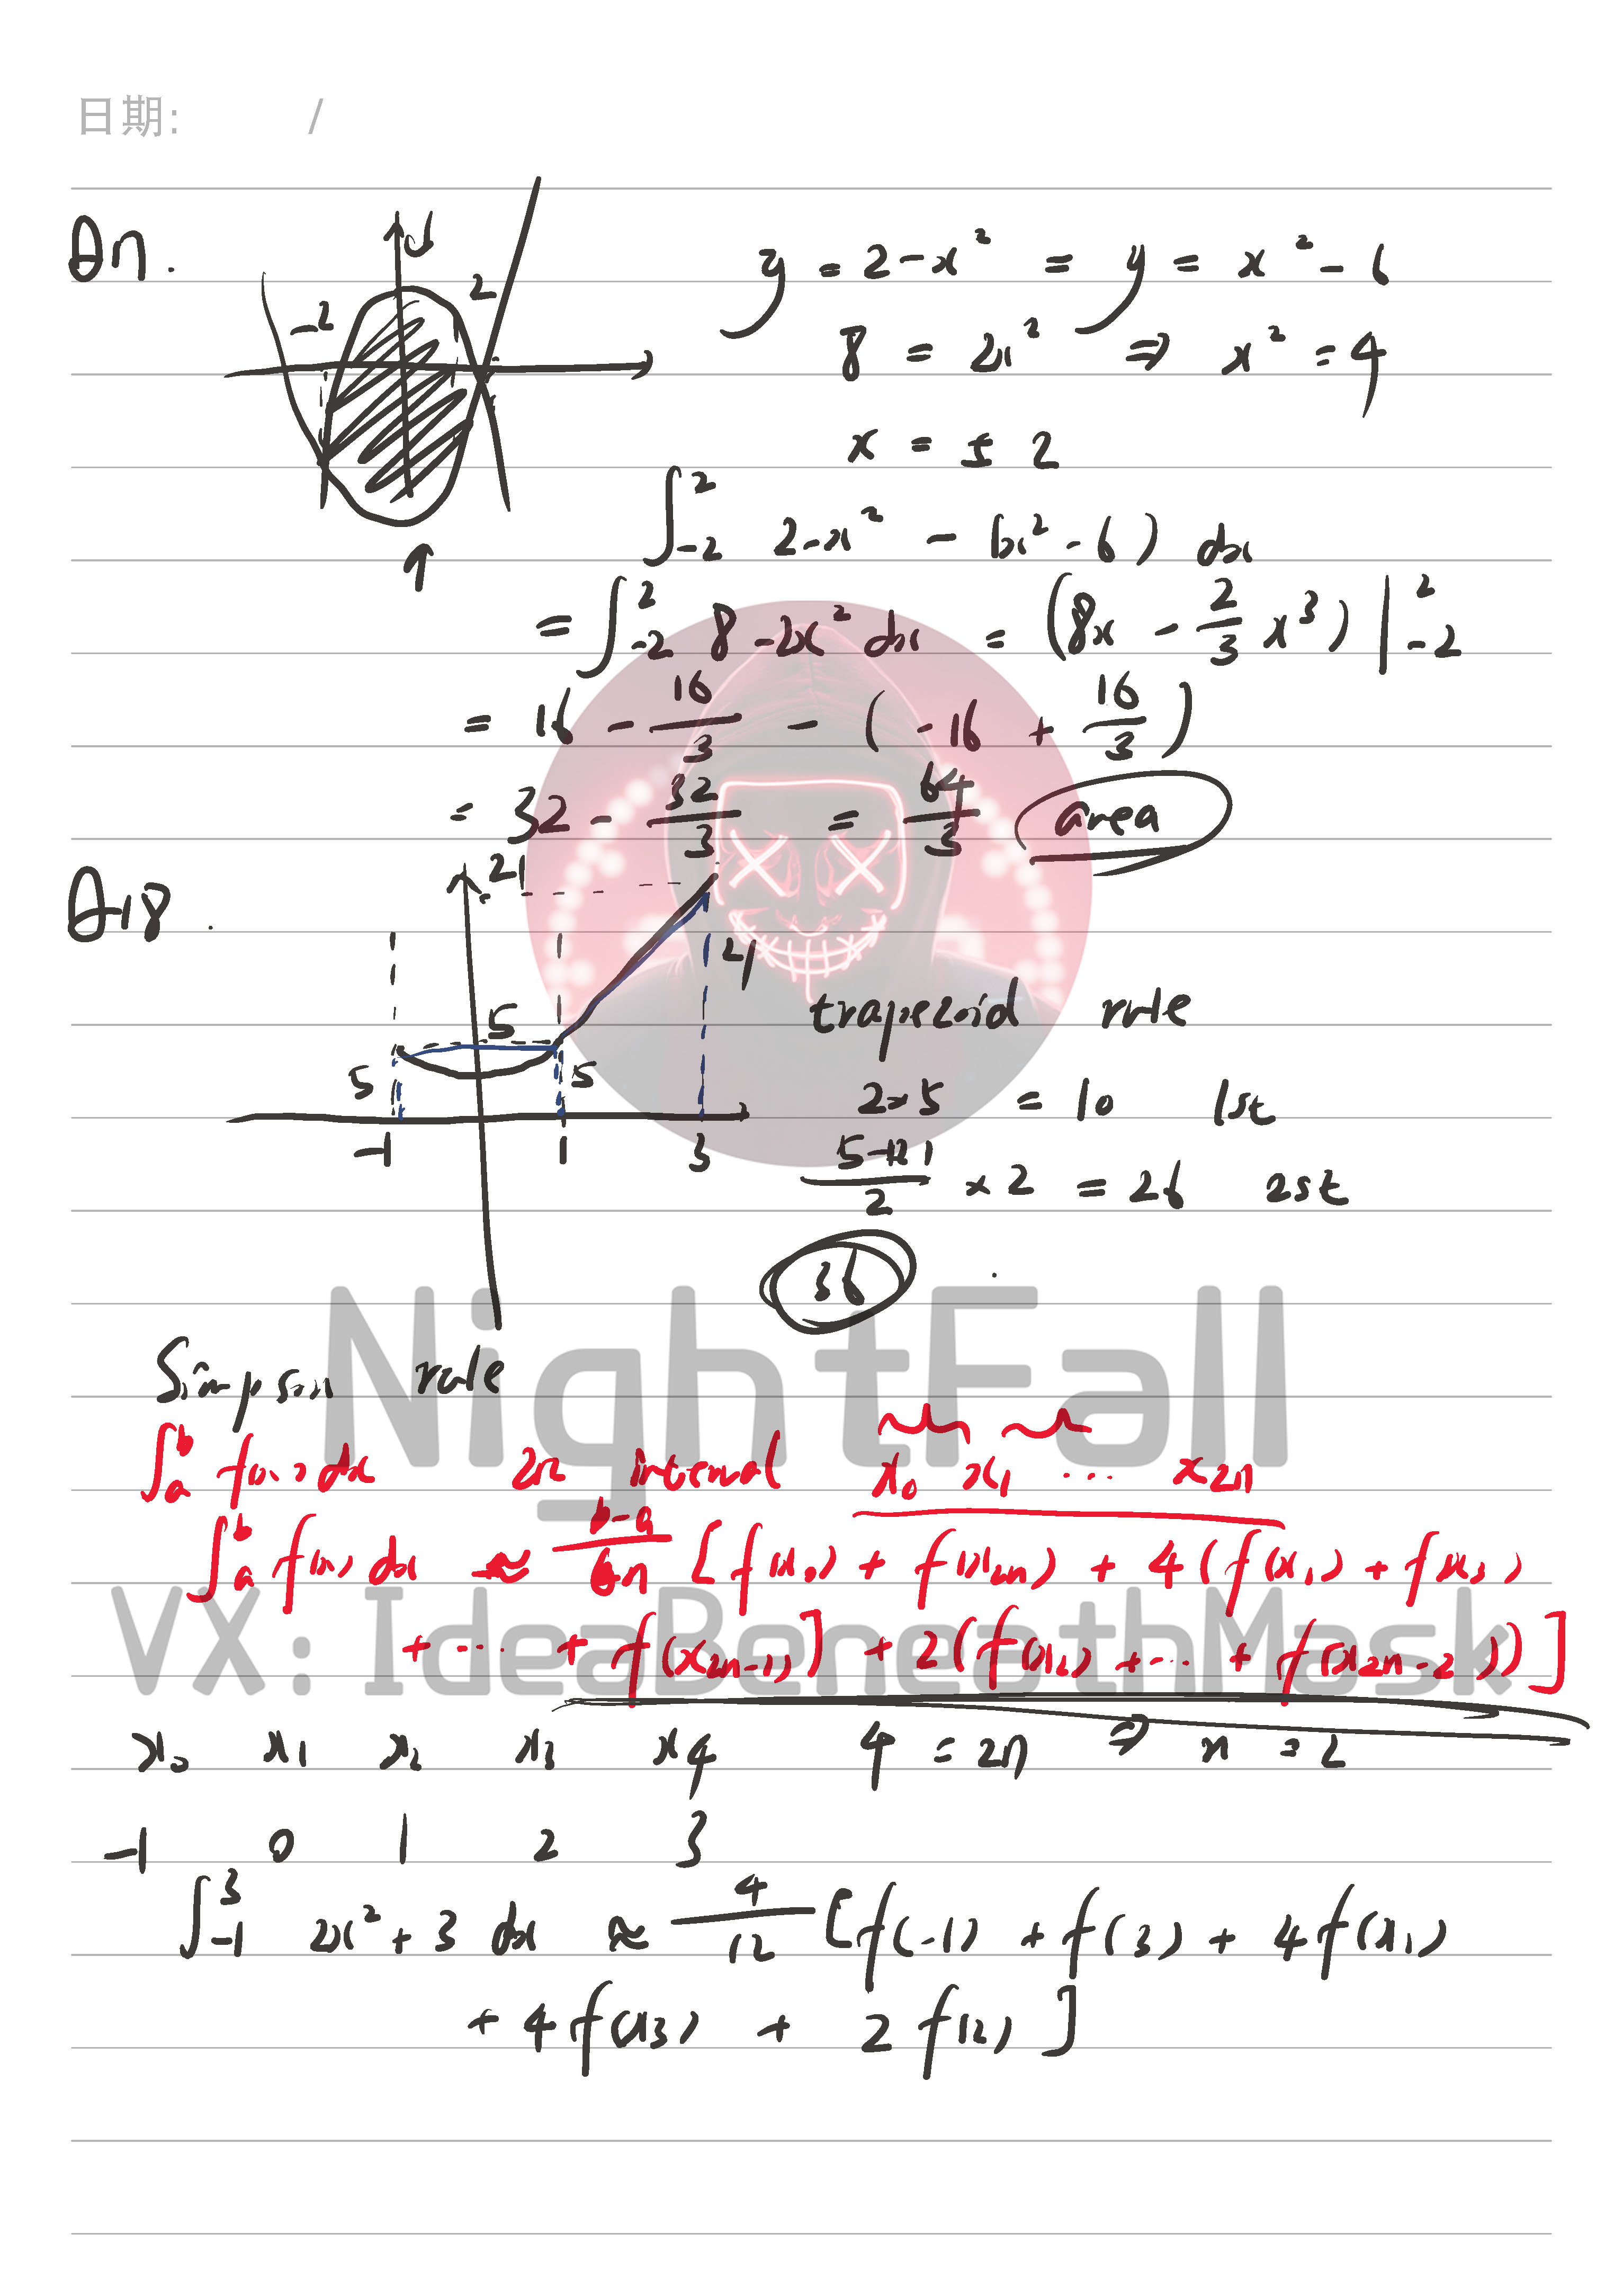 日期: /
Q17.
-2 2
y = 2-x² = y = x²-6
8 = 2x² ⇒ x² = 4
x = ± 2
∫₋₂² 2-x² - (x²-6) dx
= ∫₋₂² 8-2x² dx = (8x - 2/3 x³) |₋₂²
= 16 - 16/3 - (-16 + 16/3)
= 32 - 32/3 = 64/3 area
Q18.
21
5 5 5 21
-1 1 3
trapezoid rule
2×5 = 10 1st
(5+21)/2 × 2 = 26 2st
36
NightFall
Simpson rule
∫ₐᵇ f(x) dx 2n interval x₀ x₁ ... x₂ₙ
∫ₐᵇ f(x) dx ≈ (b-a)/6n [f(x₀) + f(x₂ₙ) + 4(f(x₁) + f(x₃)
+ ... + f(x₂ₙ₋₁)) + 2(f(x₂) + ... + f(x₂ₙ₋₂))]
VX: IdeaBeneathMask
x₀ x₁ x₂ x₃ x₄ 4 = 2n ⇒ n = 2
-1 0 1 2 3
∫₋₁³ 2x² + 3 dx ≈ 4/12 [f(-1) + f(3) + 4f(x₁)
+ 4f(x₃) + 2f(2)]